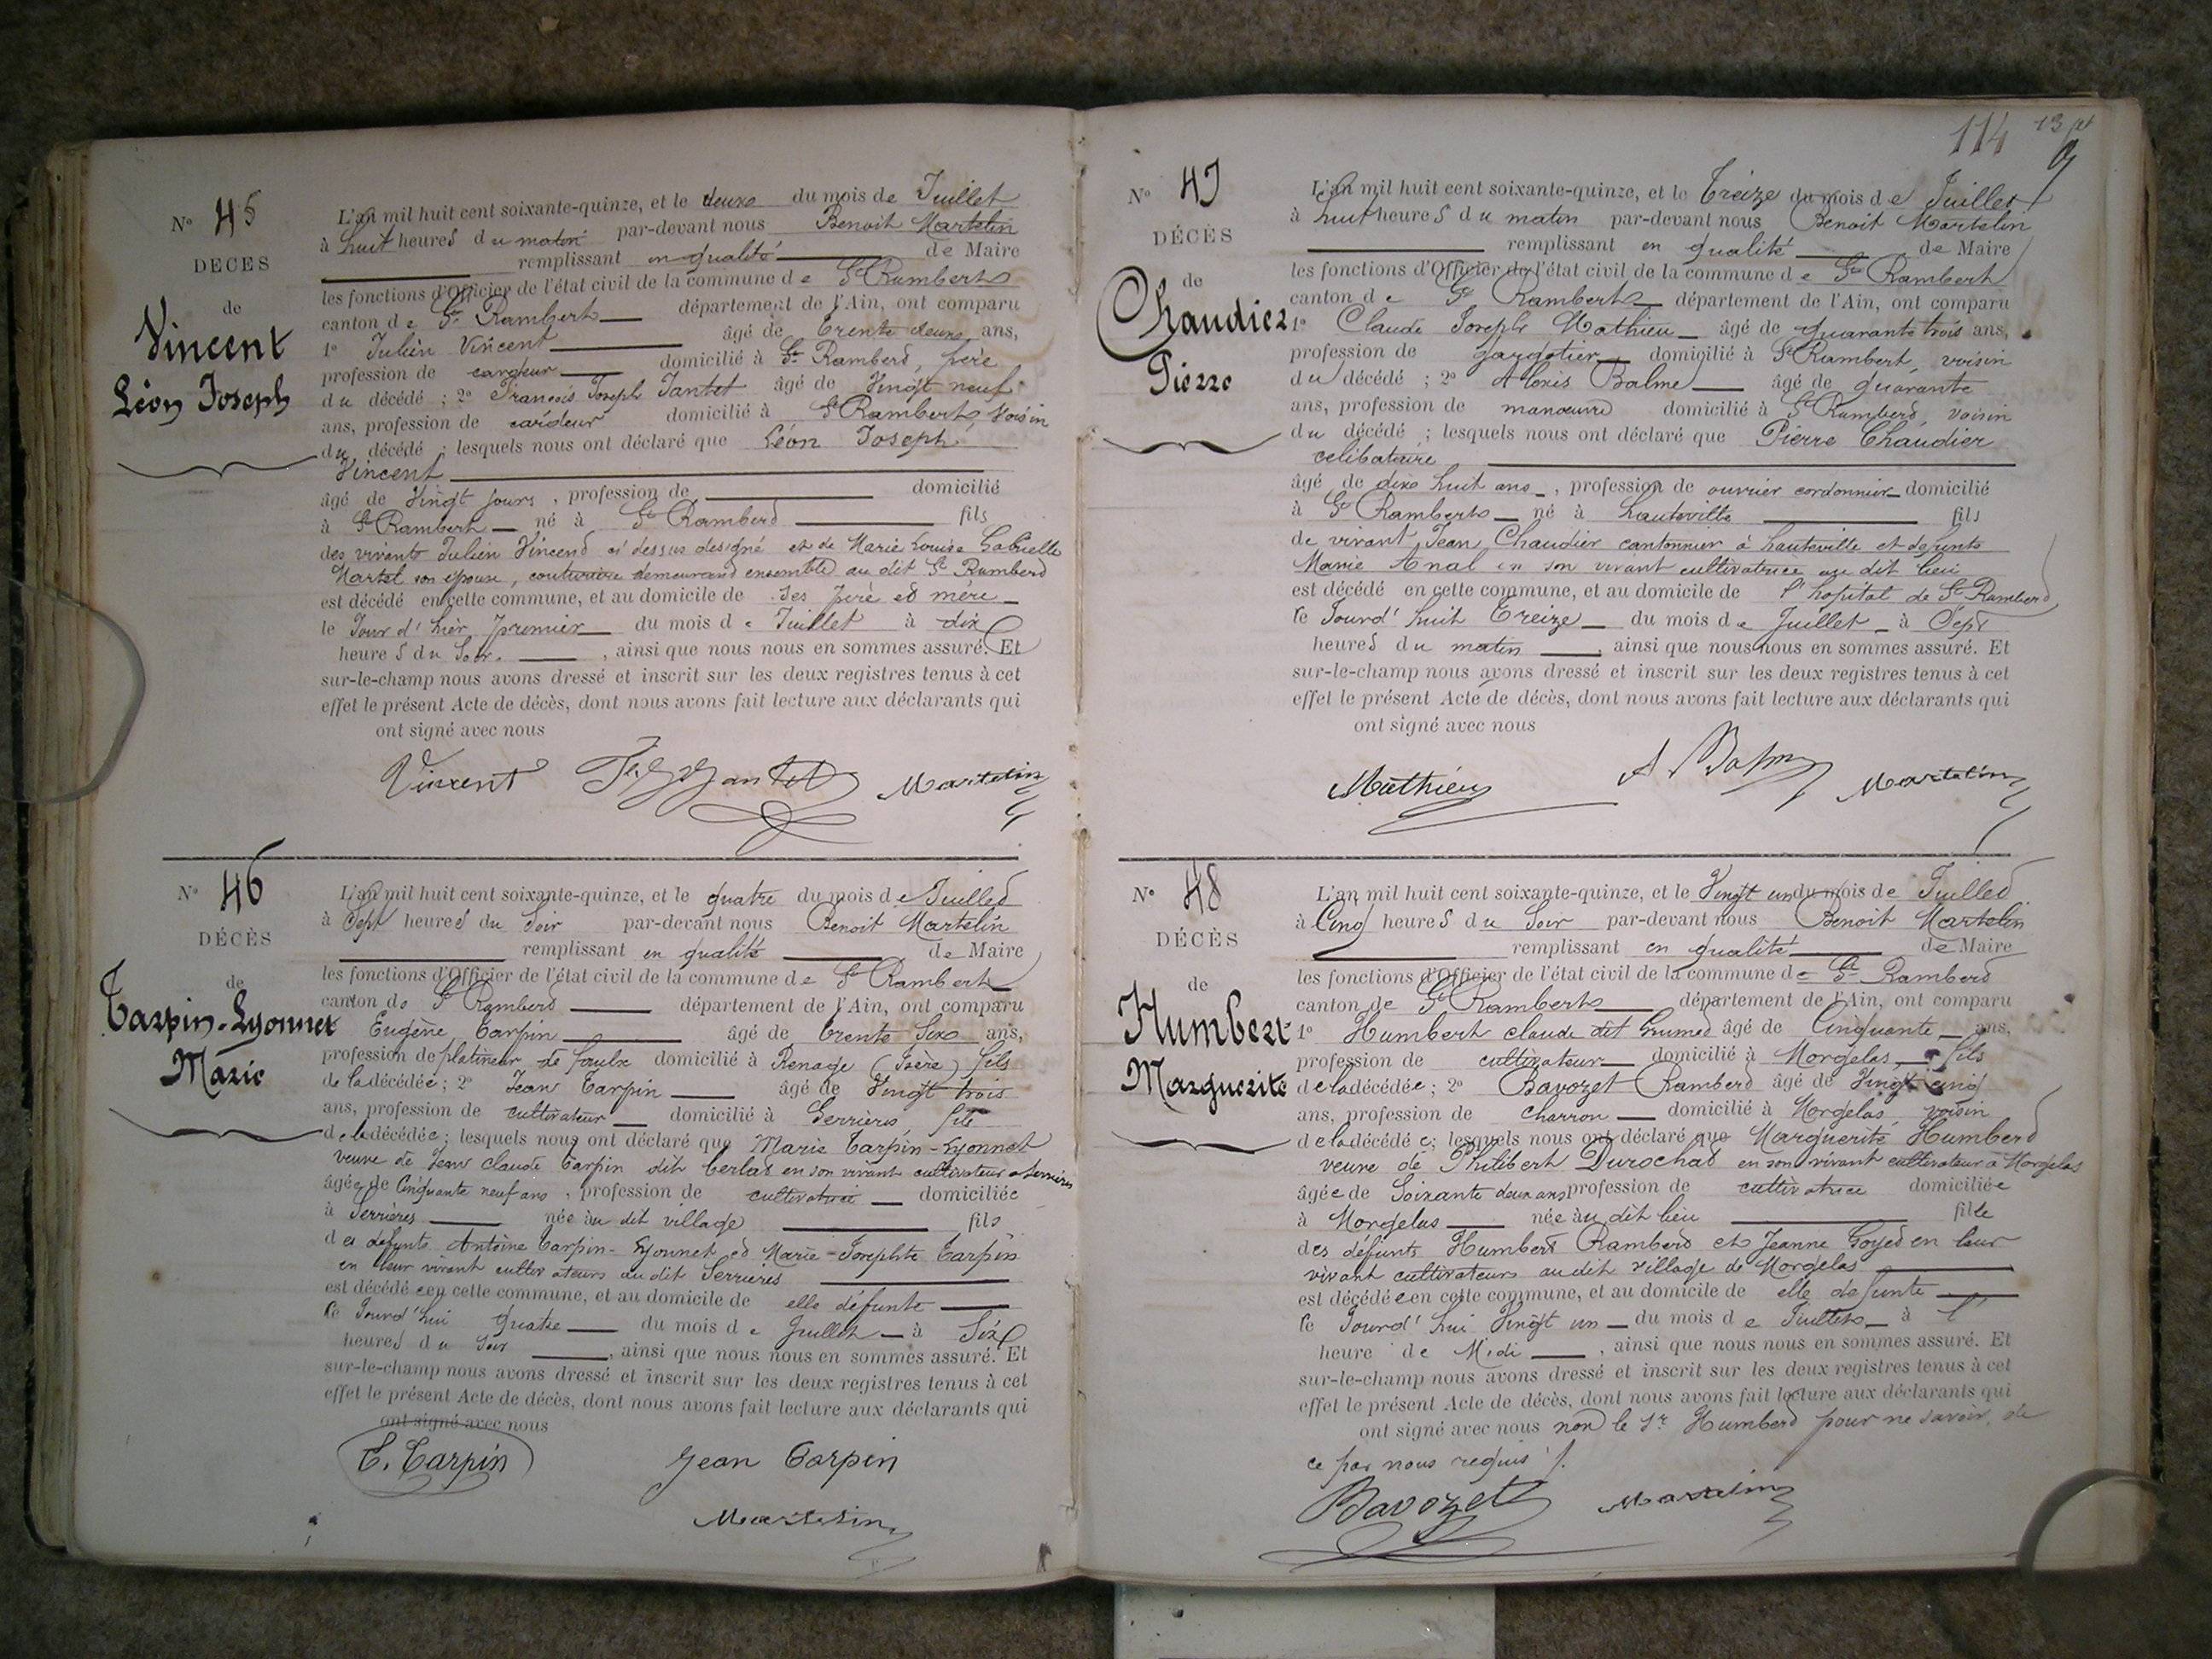 N° 45
DECES
de
Vincent
Léon Joseph
L'an mil huit cent soixante-quinze, et le deuxe du mois de Juillet
à huit heures du matin par-devant nous Benoit Martelin
remplissant en qualité de Maire
les fonctions d'Officier de l'état civil de la commune de St Rambert
canton de St Rambert département de l'Ain, ont comparu
1° Julien Vincent âgé de trente deuxe ans,
profession de cardeur domicilié à St Rambert, père
du décédé ; 2° François Joseph Jantet âgé de Vingt neuf
ans, profession de cardeur domicilié à St Rambert, voisin
du décédé ; lesquels nous ont déclaré que Léon Joseph
Vincent
âgé de Vingt jours, profession de domicilié
à St Rambert né à St Rambert fils
des vivants Julien Vincent ci dessus designé et de Marie Louise Gabrielle
Martel son épouse, couturière demeurant ensemble au dit St Rambert
est décédé en cette commune, et au domicile de ses père et mère
le Jour d'hier premier du mois de Juillet à dix
heures du Soir. , ainsi que nous nous en sommes assuré. Et
sur-le-champ nous avons dressé et inscrit sur les deux registres tenus à cet
effet le présent Acte de décès, dont nous avons fait lecture aux déclarants qui
ont signé avec nous
Vincent Jantet Martelin
N° 46
DÉCÈS
de
Tarpin-Lyonnet
Marie
L'an mil huit cent soixante-quinze, et le quatre du mois de Juillet
à Sept heures du Soir par-devant nous Benoit Martelin
remplissant en qualité de Maire
les fonctions d'Officier de l'état civil de la commune de St Rambert
canton de St Rambert département de l'Ain, ont comparu
Eugène Tarpin âgé de trente Sixe ans,
profession de platineur de foulx domicilié à Renage (Isère) fils
de la décédée ; 2° Jean Tarpin âgé de Vingt trois
ans, profession de cultivateur domicilié à Serrières, fils
de la décédée ; lesquels nous ont déclaré que Marie Tarpin-Lyonnet
veuve de Jean Claude Tarpin dit berlat en son vivant cultivateur a Serrières
âgée de Cinquante neuf ans, profession de cultivatrice domiciliée
à Serrières née au dit village fils
des défunts Antoine Tarpin-Lyonnet et Marie-Josephte Tarpin
en leur vivant cultivateurs au dit Serrières
est décédée en cette commune, et au domicile de elle défunte
le Jourd'hui quatre du mois de Juillet à Six
heures du Soir , ainsi que nous nous en sommes assuré. Et
sur-le-champ nous avons dressé et inscrit sur les deux registres tenus à cet
effet le présent Acte de décès, dont nous avons fait lecture aux déclarants qui
ont signé avec nous
E. Tarpin Jean Tarpin
Martelin
114
N° 47
DÉCÈS
de
Chaudier
Pierre
L'an mil huit cent soixante-quinze, et le Treize du mois de Juillet
à huit heures du matin par-devant nous Benoit Martelin
remplissant en qualité de Maire
les fonctions d'Officier de l'état civil de la commune de St Rambert
canton de St Rambert département de l'Ain, ont comparu
1° Claude Joseph Mathieu âgé de quarante trois ans,
profession de gargotier domicilié à St Rambert, voisin
du décédé ; 2° Alexis Balme âgé de quarante
ans, profession de manœuvre domicilié à St Rambert, voisin
du décédé ; lesquels nous ont déclaré que Pierre Chaudier
celibataire
âgé de dixe huit ans, profession de ouvrier cordonnier domicilié
à St Rambert né à hauteville fils
de vivant Jean Chaudier cantonnier à hauteville et defunte
Marie Anal en son vivant cultivatrice au dit lieu
est décédé en cette commune, et au domicile de l'hopital de St Rambert
le Jourd'huit Treize du mois de Juillet à Sept
heures du matin , ainsi que nous nous en sommes assuré. Et
sur-le-champ nous avons dressé et inscrit sur les deux registres tenus à cet
effet le présent Acte de décès, dont nous avons fait lecture aux déclarants qui
ont signé avec nous
Mathieu A Balme Martelin
N° 48
DÉCÈS
de
Humbert
Marguerite
L'an mil huit cent soixante-quinze, et le Vingt un du mois de Juillet
à Cinq heures du Soir par-devant nous Benoit Martelin
remplissant en qualité de Maire
les fonctions d'Officier de l'état civil de la commune de St Rambert
canton de St Rambert département de l'Ain, ont comparu
1° Humbert claude dit âgé de Cinquante ans,
profession de cultivateur domicilié à Morgelas, fils
de la décédée ; 2° Bavozet Rambert âgé de Vingt cinq
ans, profession de charron domicilié à Morgelas, voisin
de la décédée ; lesquels nous ont déclaré que Marguerite Humbert
veuve de Philibert Durochat en son vivant cultivateur à Morgelas
âgée de Soixante deux ans profession de cultivatrice domiciliée
à Morgelas née au dit lieu fille
des défunts Humbert Rambert et Jeanne Goyet en leur
vivant cultivateurs au dit village de Morgelas
est décédée en cette commune, et au domicile de elle defunte
le Jourd'hui Vingt un du mois de Juillet à l'
heure de Midi , ainsi que nous nous en sommes assuré. Et
sur-le-champ nous avons dressé et inscrit sur les deux registres tenus à cet
effet le présent Acte de décès, dont nous avons fait lecture aux déclarants qui
ont signé avec nous non le Sr Humbert pour ne savoir, de
ce par nous requis /.
Bavozet Martelin